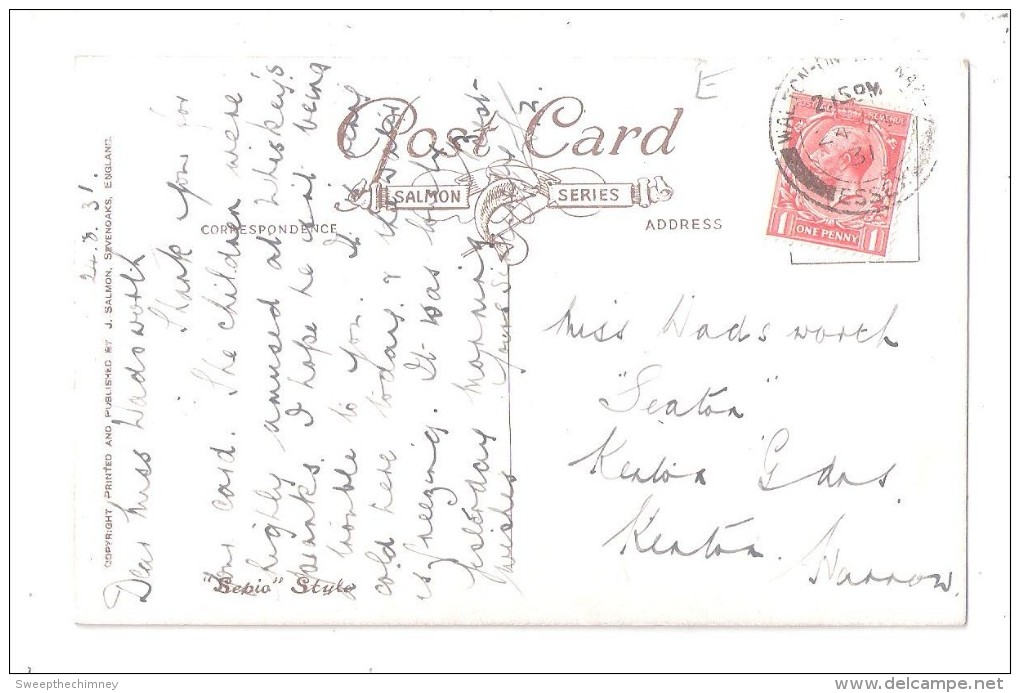 Post Card
SALMON SERIES
CORRESPONDENCE
ADDRESS
COPYRIGHT PRINTED AND PUBLISHED BY J. SALMON, SEVENOAKS, ENGLAND.
"Sepio" Style
E
WALTON-ON
2.15PM
31
ESSEX
POSTAGE REVENUE
1 ONE PENNY 1
.3.31.
Dear Miss Wadsworth
Thank you for
your card. The children were
highly amused at Whiskey's
pranks. I hope he isn't being
a trouble to you. It is very
cold here today, & the wind
is freezing. It was lovely
yesterday morning
wishes Yours
Miss Wadsworth
"Seaton"
Kenton Gdns.
Kenton.
Harrow.
Sweepthechimney
delcampe.net